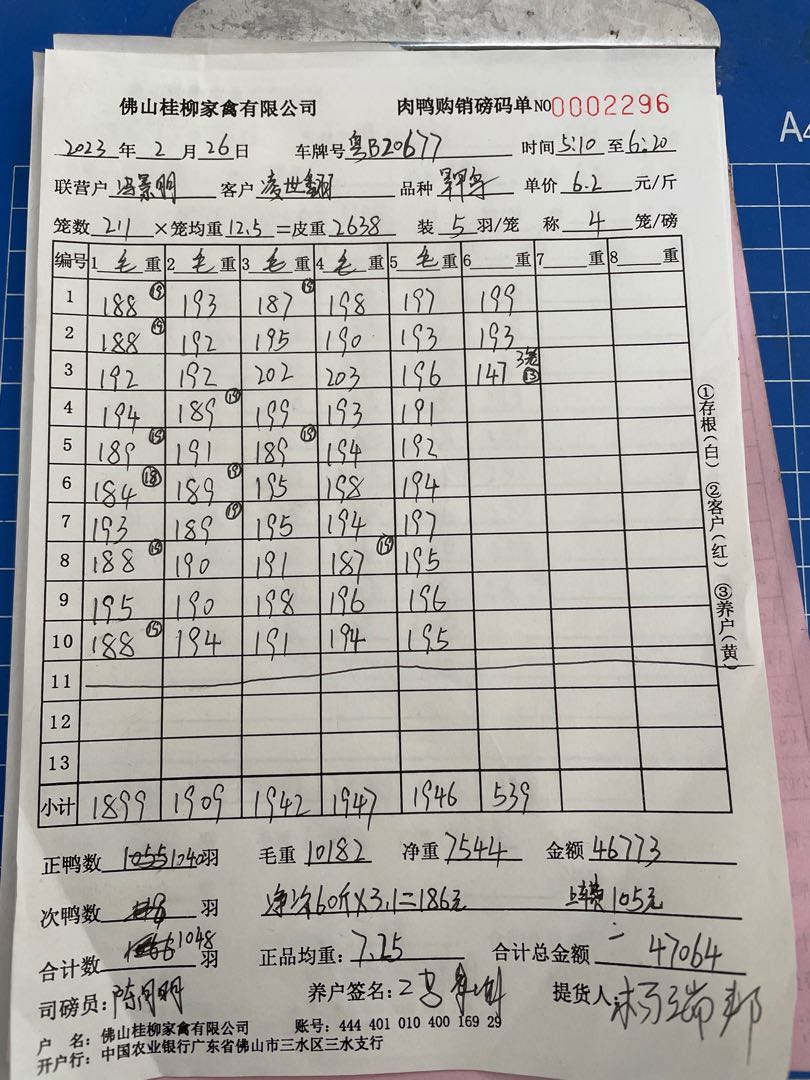 佛山桂柳家禽有限公司 肉鸭购销磅码单 NO 0002296
2023 年 2 月 26 日 车牌号 粤B20677 时间 5:10 至 6:20
联营户 冯景明 客户 凌世翻 品种 单价 6.2 元/斤
笼数 211 ×笼均重 12.5 =皮重 2638 装 5 羽/笼 称 4 笼/磅
编号 1 毛 重 2 毛 重 3 毛 重 4 毛 重 5 毛 重 6 重 7 重 8 重
1 188 ⑲ 193 187 ⑲ 198 197 199
2 188 ⑲ 192 195 190 193 193
3 192 192 202 203 196 147 3笼 ⑬
4 194 189 ⑲ 199 193 191
5 189 ⑲ 191 189 ⑲ 194 192
6 184 ⑱ 189 ⑲ 195 198 194
7 193 189 ⑲ 195 194 197
8 188 ⑲ 190 191 187 ⑲ 195
9 195 190 198 196 196
10 188 ⑲ 194 191 194 195
11
12
13
小计 1899 1909 1942 1947 1946 539
正鸭数 1055 1040 羽 毛重 10182 净重 7544 金额 46773
次鸭数 8 羽 60斤×3.1=186元 105元
合计数 1048 羽 正品均重: 7.25 合计总金额 47064
司磅员: 陈月明 养户签名: 提货人: 杨瑞邦
户 名: 佛山桂柳家禽有限公司 账号: 444 401 010 400 169 29
开户行: 中国农业银行广东省佛山市三水区三水支行
①存根(白) ②客户(红) ③养户(黄)
A4